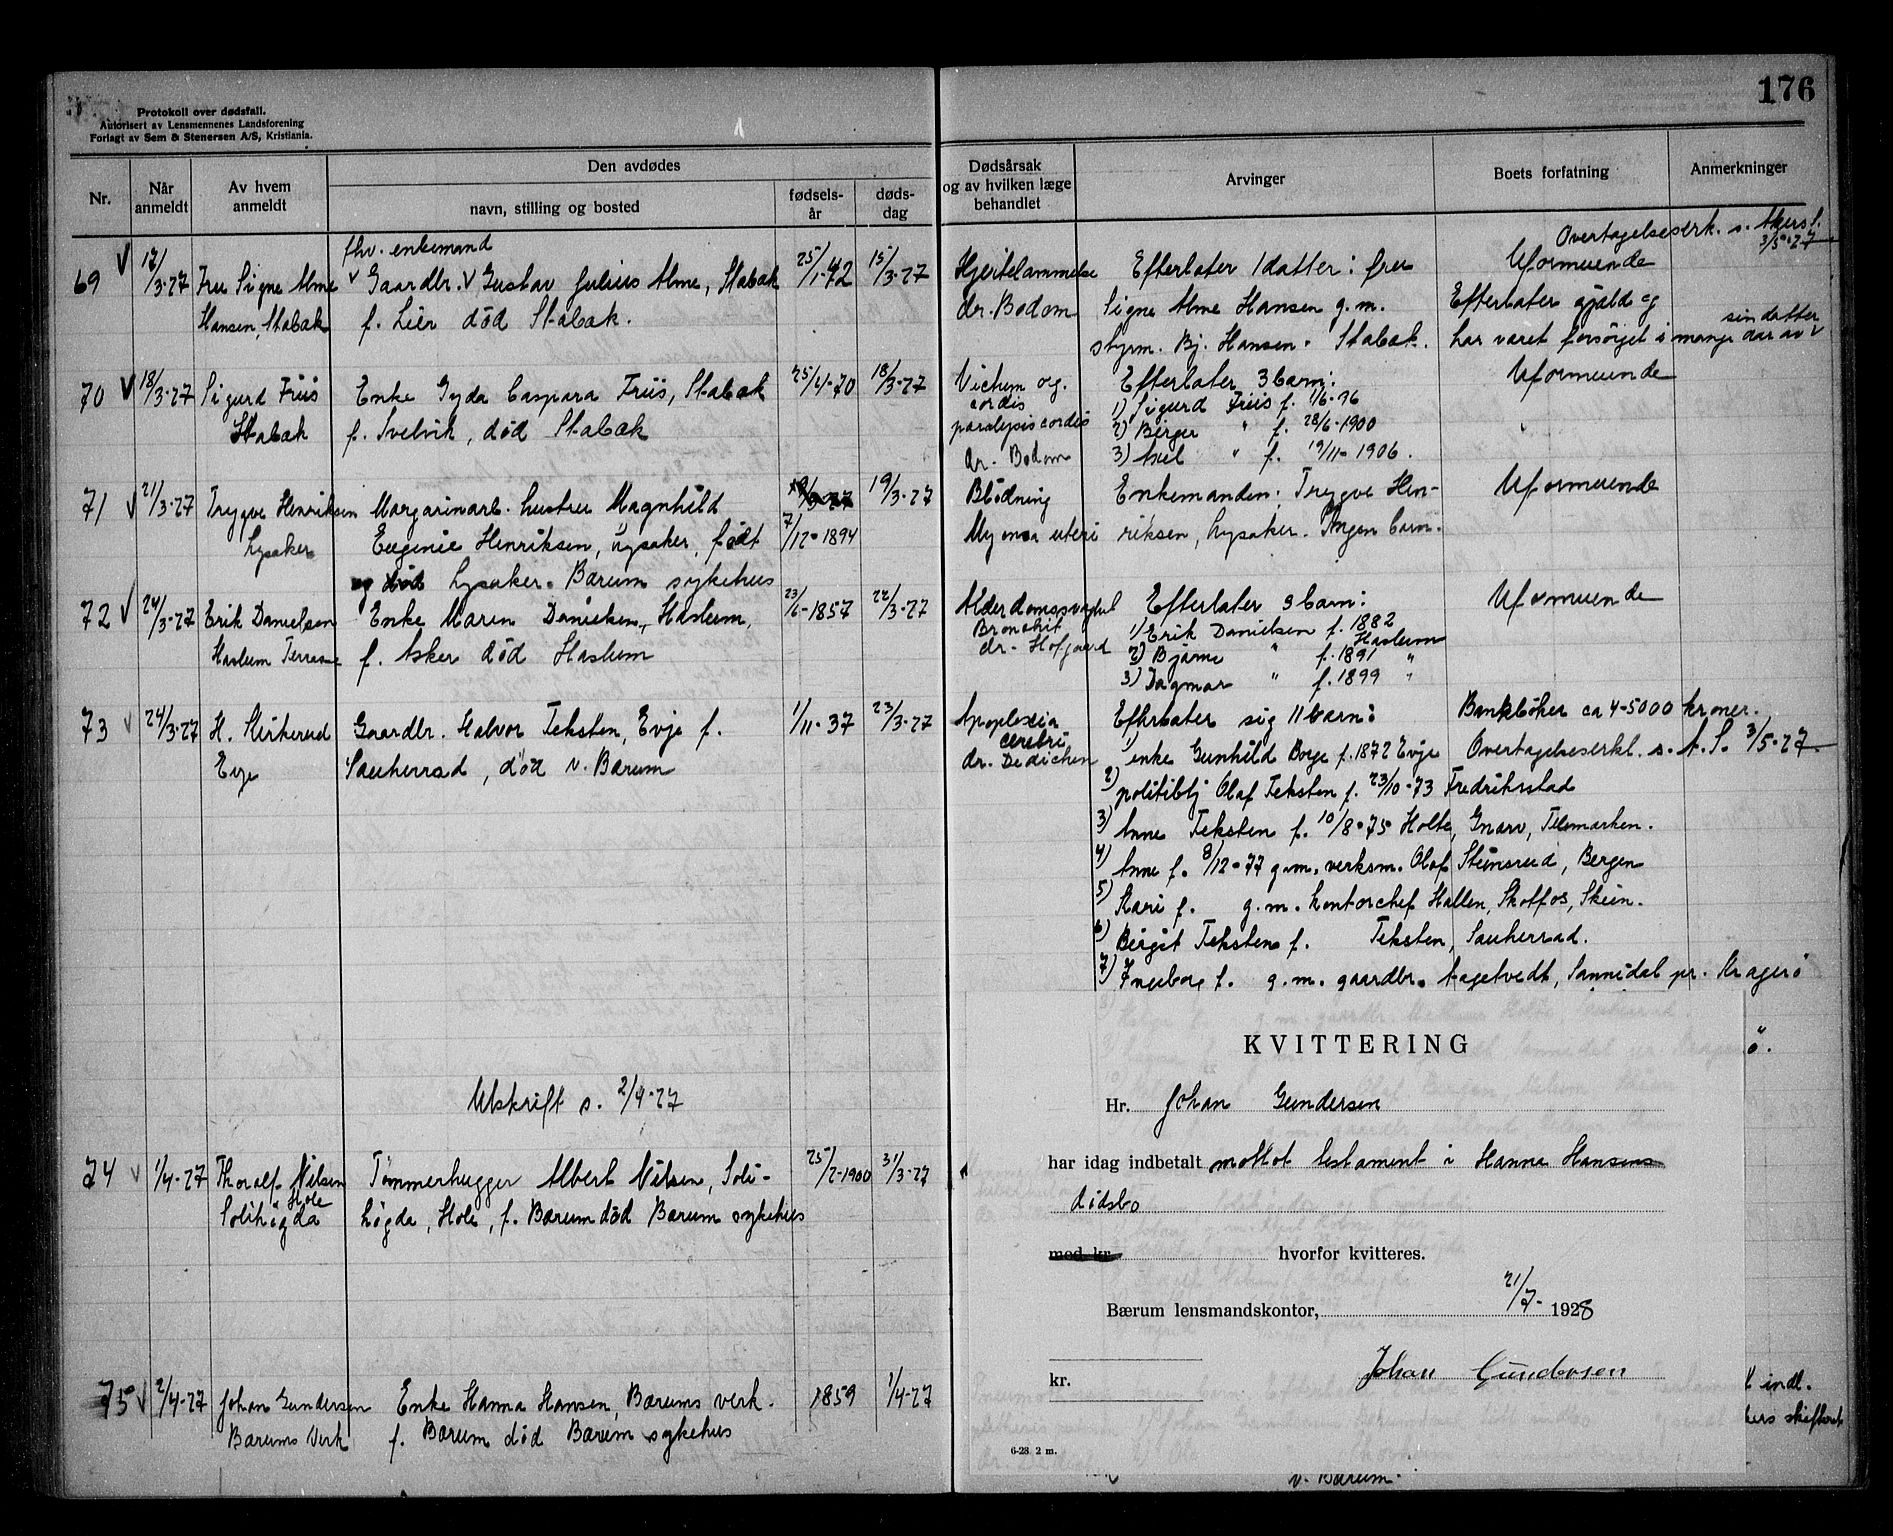 176
Protokoll over dødsfall.
Autorisert av Lensmennenes Landsforening
Forlagt av Sem & Stenersen A/S, Kristiania.
Nr.
Når anmeldt
Av hvem anmeldt
Den avdødes
navn, stilling og bosted
fødsels-år
døds-dag
Dødsårsak og av hvilken læge behandlet
Arvinger
Boets forfatning
Anmerkninger
fhv. enkemand
Overtagelseserk. s. Akersf. 3/5-27
69 V 17/3-27 Fru Signe Alme V Gaardbr. V Gustav Julius Alme, Stabæk 25/1-42 15/3-27 Hjertelammelse Efterlater 1 datter: fru Uformuende
Hansen, Stabæk f. Lier død Stabæk. dr. Bodom Signe Alme Hansen g.m. Efterlater gjæld og
styrm. Bj. Hansen. Stabæk. har været forsørget i mange aar av V sin datter
70 V 18/3-27 Sigurd Friis Enke Gyda Caspara Friis, Stabæk 25/4-70 18/3-27 Vichum og. Efterlater 3 barn: Uformuende
Stabæk f. Svelvik, død Stabæk cordis 1) Sigurd Friis f. 1/6-96
paralysis cordis 2) Birger " f. 28/6-1900
dr. Bodom 3) Axel " f. 19/11-1906.
71 V 21/3-27 Trygve Henriksen Margarinarb. hustru Magnhild 19/3-27 Blødning Enkemanden: Trygve Hen- Uformuende
Lysaker Eugenie Henriksen, Lysaker, født 7/12-1894 Myoma uteri riksen, Lysaker. Ingen barn.
og død Lysaker. Bærum sykehus
72 V 24/3-27 Erik Danielsen Enke Maren Danielsen, Haslum, 23/6-1857 22/3-27 Alderdomssvaghet Efterlater 3 barn: Uformuende
Haslum Terrasse f. Asker død Haslum Bronchit 1) Erik Danielsen f. 1882 Haslum
dr. Hofgaard 2) Bjarne " f. 1891 "
3) Dagmar " f. 1899 "
73 V 24/3-27 H. Kirkerud Gaardbr. Halvor Teksten, Evje f. 1/11-37 23/3-27 Apoplexia Efterlater sig 11 barn: Bankbøker ca 4-5000 kroner.
Evje Sauherrad, død V. Bærum cerebri 1) enke Gunhild Borge f. 1872 Evje Overtagelseserkl. s. A. S. 3/5-27
dr. Dedichen 2) politibtj Olaf Teksten f. 23/10-73 Fredriksstad
3) Anne Teksten f. 10/8-75 Holte, Gvarv, Telemarken.
4) Anne f. 8/12-77 g.m. verksm. Olaf Steinsrud, Bergen
5) Kari f. g.m. kontorchef Hallen, Skotfos, Skien.
6) Birgit Teksten f. Teksten, Sauherrad.
7) Ingeborg f. g.m. gaardbr. Aagetvedt, Sannidal pr. Kragerø
Utskrift s. 2/4-27
74 V 1/4-27 Thoralf Nilsen Tømmerhugger Albert Nilsen, Soli- 25/2-1900 31/3-27
Solihøgda Hole høgda, Hole, f. Bærum død Bærum sykehus
75 V 2/4-27 Johan Gundersen Enke Hanna Hansen, Bærums verk. 1859 1/4-27
Bærums Verk f. Bærum død Bærum sykehus
KVITTERING
Hr. Johan Gundersen
har idag indbetalt mottat testament i Hanna Hansens
dødsbo
med kr. hvorfor kvitteres.
Bærum lensmandskontor, 21/7- 1928
kr. Johan Gundersen
6-28 2 m.
indl.
skifteret
v. Bærum.